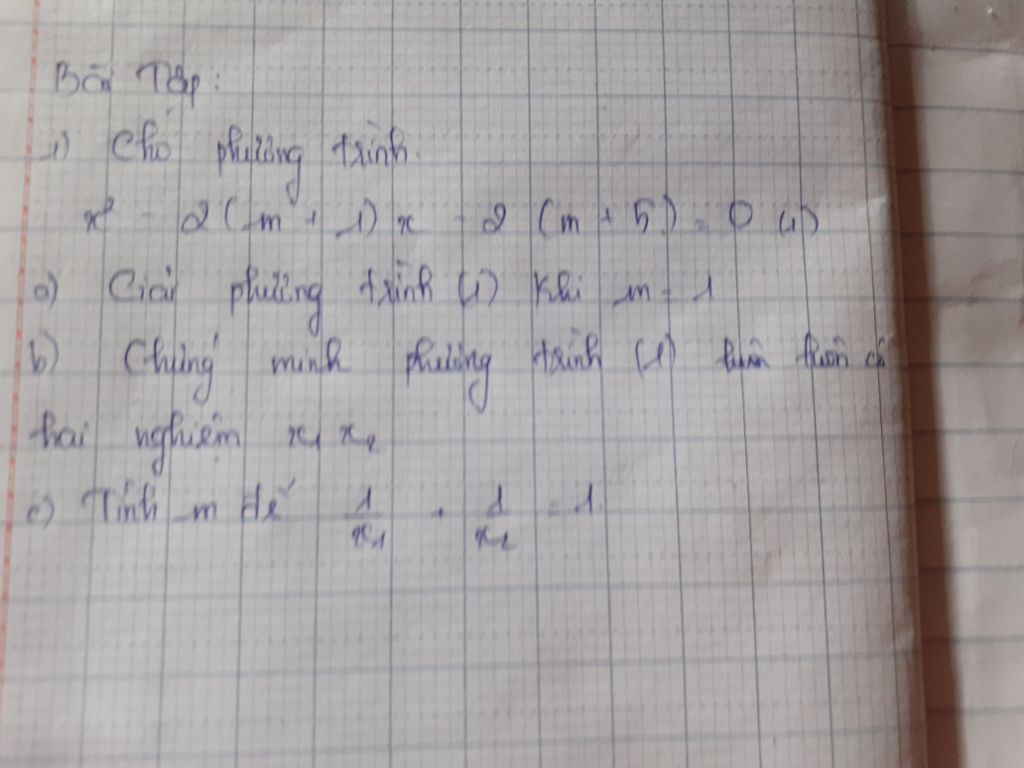 Bài Tập:
1) Cho phương trình.
x² - 2(m + 1)x - 2(m + 5) = 0 (1)
a) Giải phương trình (1) Khi m = 1
b) Chứng minh phương trình (1) luôn luôn có
hai nghiệm x₁ x₂
c) Tính m để 1/x₁ + 1/x₂ = 1.